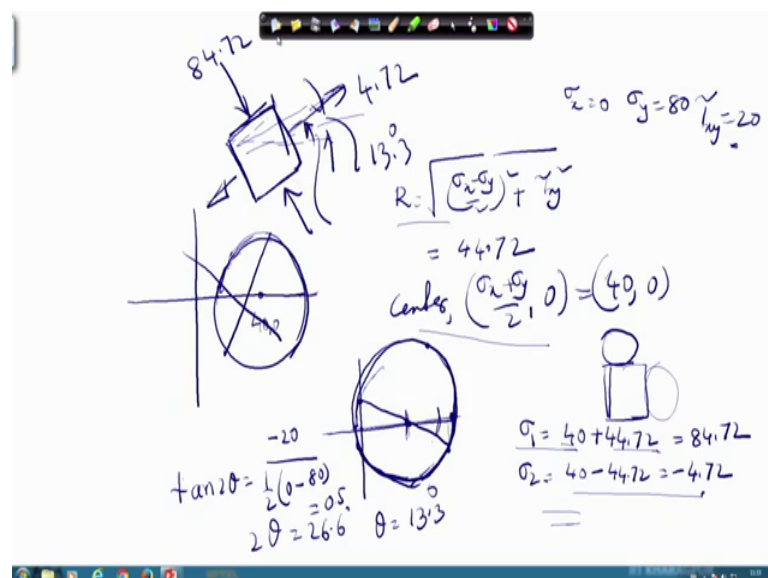 84.72
4.72
13.3°
σx=0 σy=80 τxy=20
R=√((σx-σy)/2)²+τxy²
=44.72
center, (σx+σy/2, 0)=(40,0)
40,0
σ1=40+44.72=84.72
σ2=40-44.72=-4.72
tan2θ=-20/½(0-80)
=05.
2θ=26.6 θ=13.3°